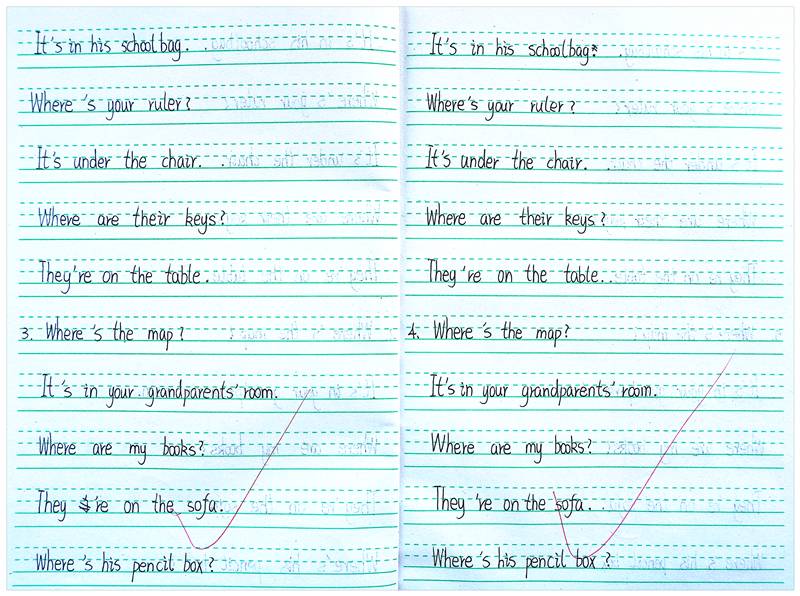 It's in his schoolbag.
Where's your ruler?
It's under the chair.
Where are their keys?
They're on the table.
3. Where's the map?
It's in your grandparents' room.
Where are my books?
They 're on the sofa.
Where's his pencil box?
It's in his schoolbag.
Where's your ruler?
It's under the chair.
Where are their keys?
They're on the table.
4. Where's the map?
It's in your grandparents' room.
Where are my books?
They 're on the sofa.
Where's his pencil box?